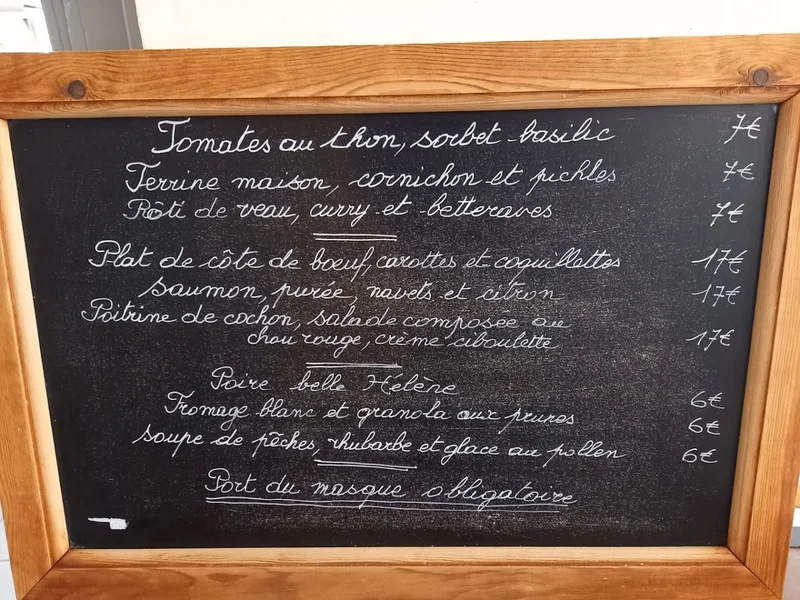 Tomates au thon, sorbet basilic 7€
Terrine maison, cornichon et pickles 7€
Rôti de veau, curry et betteraves 7€
Plat de côte de boeuf, carottes et coquillettes 17€
Saumon, purée, navets et citron 17€
Poitrine de cochon, salade composée au
chou rouge, crème ciboulette 17€
Poire belle Hélène 6€
Fromage blanc et granola aux prunes 6€
Soupe de pêches, rhubarbe et glace au pollen 6€
Port du masque obligatoire